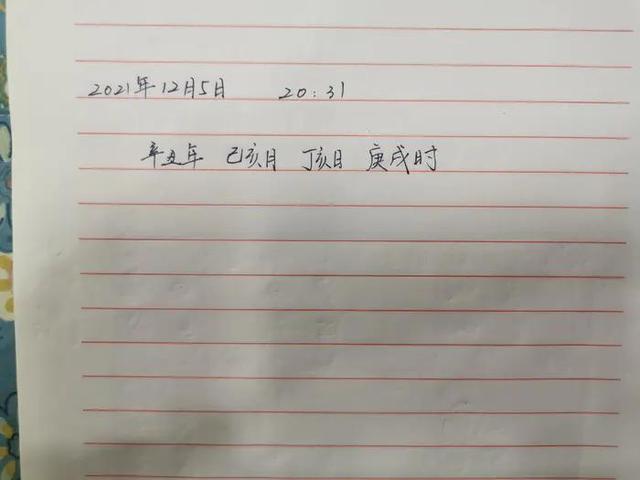 2021年12月5日 20:31
辛丑年 己亥月 丁亥日 庚戌时